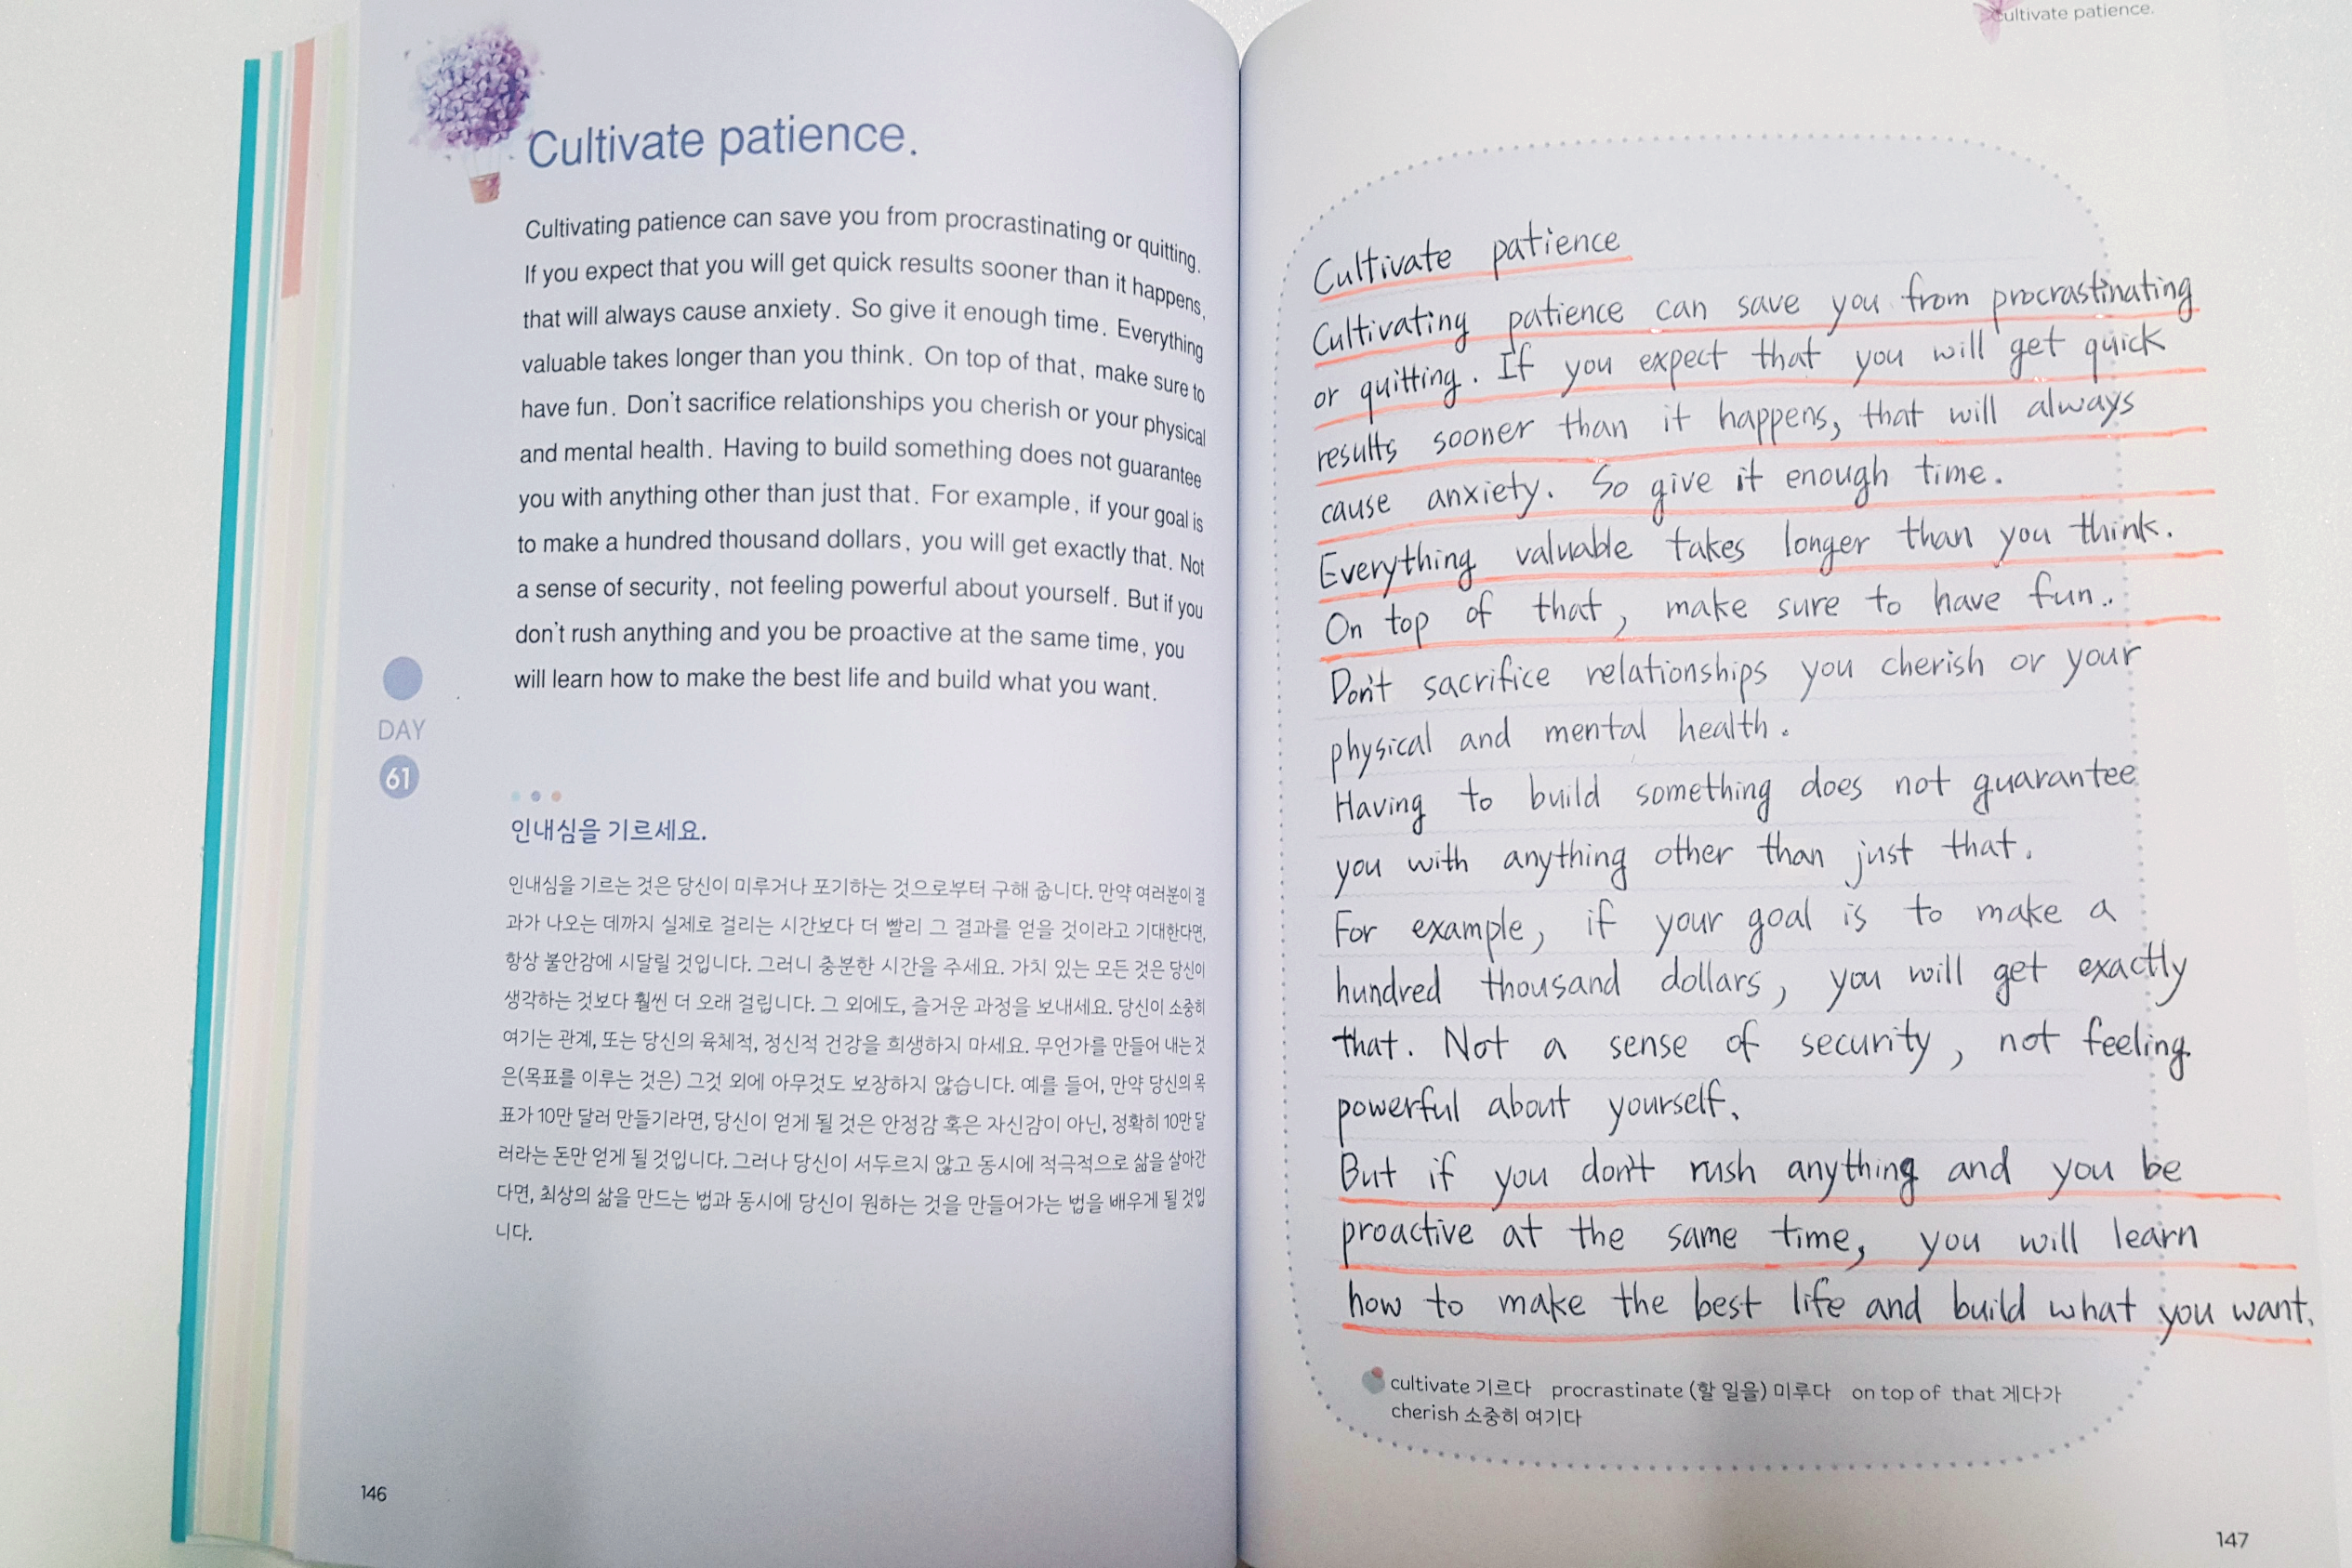 Cultivate patience.
Cultivating patience can save you from procrastinating or quitting.
If you expect that you will get quick results sooner than it happens,
that will always cause anxiety. So give it enough time. Everything
valuable takes longer than you think. On top of that, make sure to
have fun. Don't sacrifice relationships you cherish or your physical
and mental health. Having to build something does not guarantee
you with anything other than just that. For example, if your goal is
to make a hundred thousand dollars, you will get exactly that. Not
a sense of security, not feeling powerful about yourself. But if you
don't rush anything and you be proactive at the same time, you
will learn how to make the best life and build what you want.
DAY
61
인내심을 기르세요.
인내심을 기르는 것은 당신이 미루거나 포기하는 것으로부터 구해 줍니다. 만약 여러분이 결
과가 나오는 데까지 실제로 걸리는 시간보다 더 빨리 그 결과를 얻을 것이라고 기대한다면,
항상 불안감에 시달릴 것입니다. 그러니 충분한 시간을 주세요. 가치 있는 모든 것은 당신이
생각하는 것보다 훨씬 더 오래 걸립니다. 그 외에도, 즐거운 과정을 보내세요. 당신이 소중히
여기는 관계, 또는 당신의 육체적, 정신적 건강을 희생하지 마세요. 무언가를 만들어 내는 것
은(목표를 이루는 것은) 그것 외에 아무것도 보장하지 않습니다. 예를 들어, 만약 당신의 목
표가 10만 달러 만들기라면, 당신이 얻게 될 것은 안정감 혹은 자신감이 아닌, 정확히 10만 달
러라는 돈만 얻게 될 것입니다. 그러나 당신이 서두르지 않고 동시에 적극적으로 삶을 살아간
다면, 최상의 삶을 만드는 법과 동시에 당신이 원하는 것을 만들어가는 법을 배우게 될 것입
니다.
146
Cultivate patience.
Cultivate patience
Cultivating patience can save you from procrastinating
or quitting. If you expect that you will get quick
results sooner than it happens, that will always
cause anxiety. So give it enough time.
Everything valuable takes longer than you think.
On top of that, make sure to have fun..
Don't sacrifice relationships you cherish or your
physical and mental health.
Having to build something does not guarantee
you with anything other than just that.
For example, if your goal is to make a
hundred thousand dollars, you will get exactly
that. Not a sense of security, not feeling
powerful about yourself.
But if you don't rush anything and you be
proactive at the same time, you will learn
how to make the best life and build what you want.
cultivate 기르다 procrastinate (할 일을) 미루다 on top of that 게다가
cherish 소중히 여기다
147